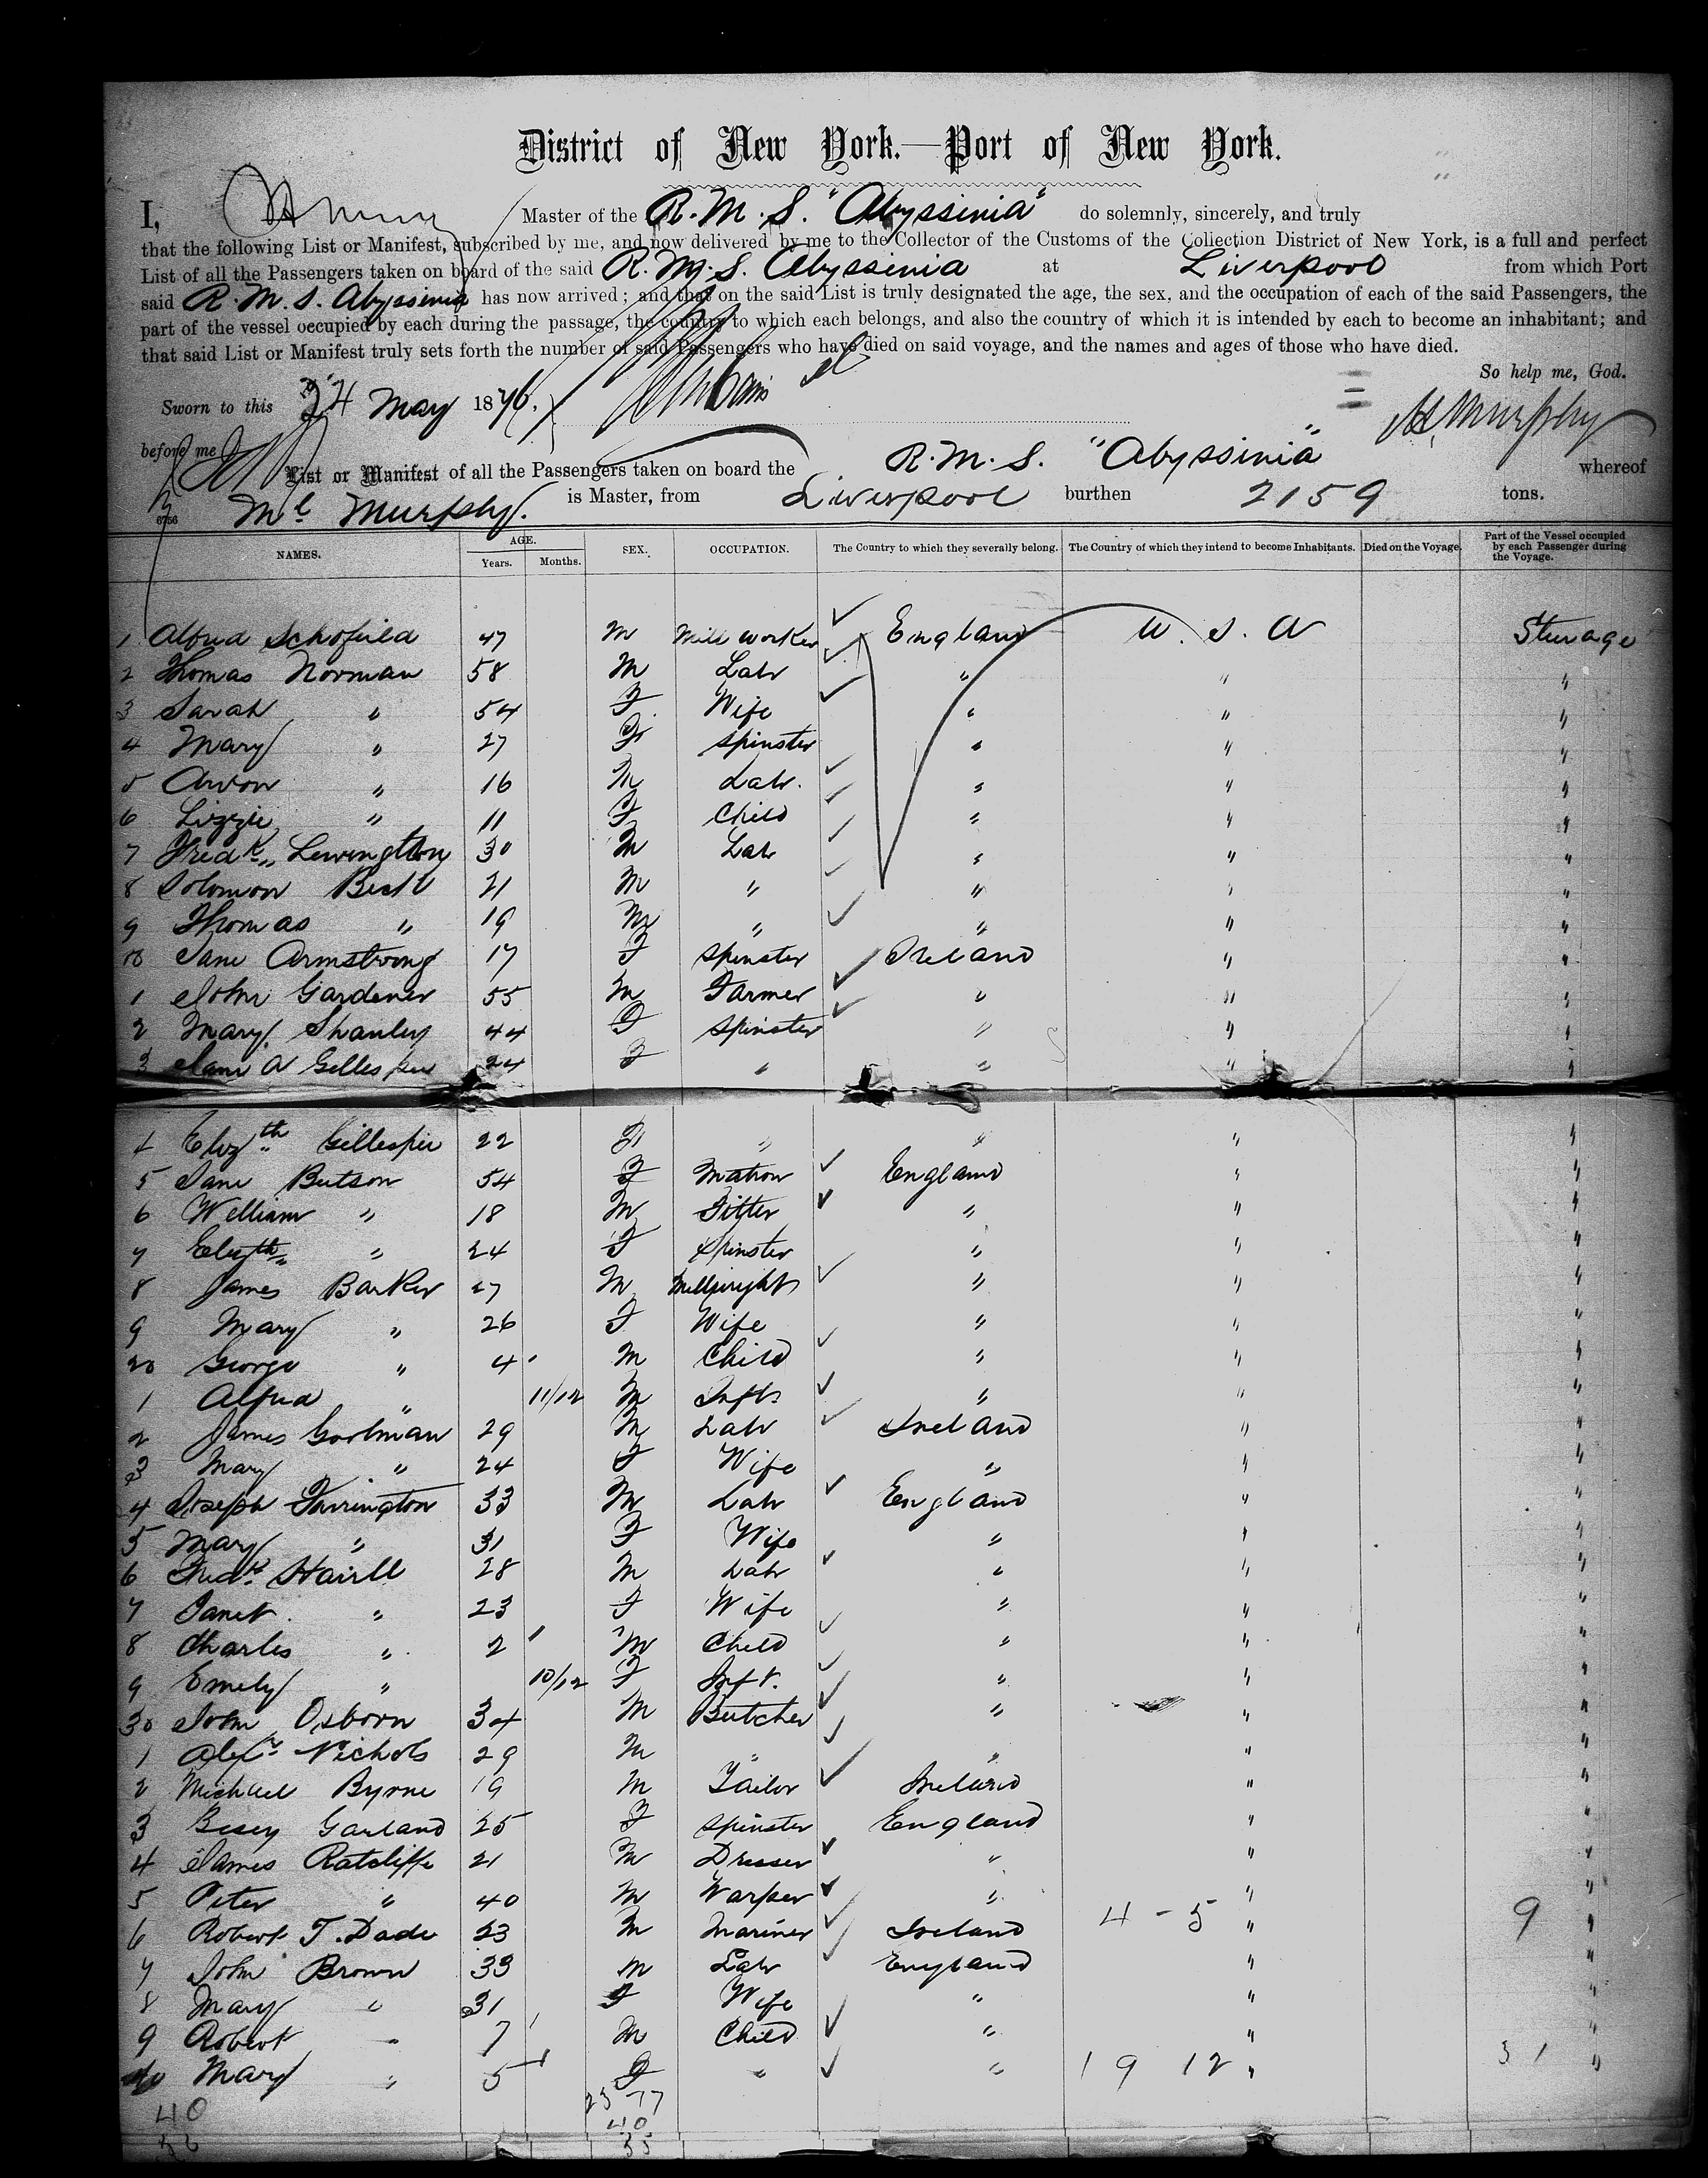 District of New York.—Port of New York.
I, Master of the R.M.S. "Abyssinia" do solemnly, sincerely, and truly
that the following List or Manifest, subscribed by me, and now delivered by me to the Collector of the Customs of the Collection District of New York, is a full and perfect
List of all the Passengers taken on board of the said R.M.S. Abyssinia at Liverpool from which Port
said R.M.S. Abyssinia has now arrived; and that on the said List is truly designated the age, the sex, and the occupation of each of the said Passengers, the
part of the vessel occupied by each during the passage, the country to which each belongs, and also the country of which it is intended by each to become an inhabitant; and
that said List or Manifest truly sets forth the number of said Passengers who have died on said voyage, and the names and ages of those who have died.
So help me, God.
Sworn to this 24 May 1876. Murphy
before me
List or Manifest of all the Passengers taken on board the R.M.S. "Abyssinia" whereof
Murphy. is Master, from Liverpool burthen 2159 tons.
NAMES. AGE. Years. Months. SEX. OCCUPATION. The Country to which they severally belong. The Country of which they intend to become Inhabitants. Died on the Voyage. Part of the Vessel occupied by each Passenger during the Voyage.
1 Alfred Schofield 47 M Mill worker England U.S.A Steerage
2 Thomas Norman 58 M Labr " " "
3 Sarah " 54 F Wife " " "
4 Mary " 27 F Spinster " " "
5 " 16 M Labr. " " "
6 Lizzie " 11 F Child " " "
7 Fredk Lewington 30 M Labr " " "
8 Solomon 21 M " " " "
9 Thomas " 19 M " " " "
10 Jane Armstrong 17 F Spinster Ireland " "
1 John Gardener 55 M Farmer " " "
2 Mary Shanley 44 F Spinster " " "
3 Jane A Gillespie 24 F " " " "
4 Elizth Gillespie 22 F " " " "
5 Jane Butson 54 F Matron England " "
6 William " 18 M Fitter " " "
7 Elizth " 24 F Spinster " " "
8 James Barker 27 M Millwright " " "
9 Mary " 26 F Wife " " "
20 George " 4 M Child " " "
1 Alfred " 11/12 M Inft " " "
2 James Gorlman 29 M Labr Ireland " "
3 Mary " 24 F Wife " " "
4 Joseph Farrington 33 M Labr England " "
5 Mary " 31 F Wife " " "
6 Fredk 28 M Labr " " "
7 Janet " 23 F Wife " " "
8 Charles " 2 M Child " " "
9 Emily " 10/12 F Inft. " " "
30 John Osborn 34 M Butcher " " "
1 Alexr Nichols 29 M " " " "
2 Michael Byrne 19 M Tailor Ireland " "
3 Garland 25 F Spinster England " "
4 James Ratcliffe 21 M Dresser " " "
5 Peter " 40 M Warper " " "
6 Robert T. Dade 23 M Mariner Ireland 4 - 5 " 9 "
7 John Brown 33 M Labr England " "
8 Mary " 31 F Wife " " "
9 Robert " 7 M Child " " "
40 Mary " 5 F " " 19 12 " 31 "
40 23 17
40